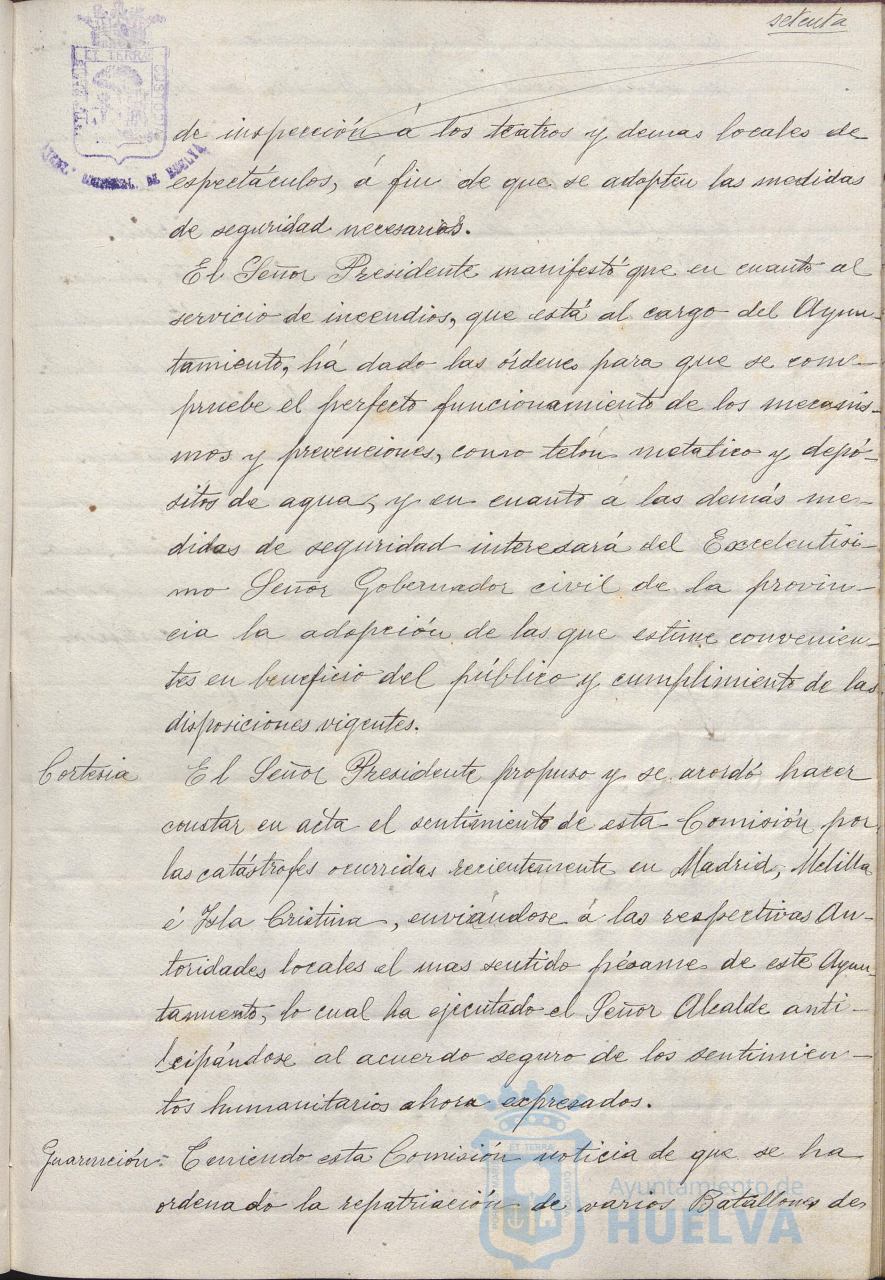 setenta
ET TERRÆ
de inspección á los teatros y demas locales de
espectáculos, á fin de que se adopten las medidas
de seguridad necesarias.
El Señor Presidente manifestó que en cuanto al
servicio de incendios, que está al cargo del Ayun-
tamiento, há dado las órdenes para que se com-
pruebe el perfecto funcionamiento de los mecanis-
mos y prevenciones, como telón metalico y depó-
sitos de agua, y en cuanto á las demás me-
didas de seguridad interesará del Excelentísi-
mo Señor Gobernador civil de la provin-
cia la adopción de las que estime convenien-
tes en beneficio del público y cumplimiento de las
disposiciones vigentes.
Cortesia El Señor Presidente propuso y se acordó hacer
constar en acta el sentimiento de esta Comisión por
las catástrofes ocurridas recientemente en Madrid, Melilla
é Isla Cristina, enviándose á las respectivas Au-
toridades locales el mas sentido pésame de este Ayun-
tamiento, lo cual ha ejecutado el Señor Alcalde anti-
cipándose al acuerdo seguro de los sentimien-
tos humanitarios ahora expresados.
Guarnición: Teniendo esta Comisión noticia de que se ha
ordenado la repatriación de varios Batallones de
ET TERRA
Ayuntamiento de
HUELVA